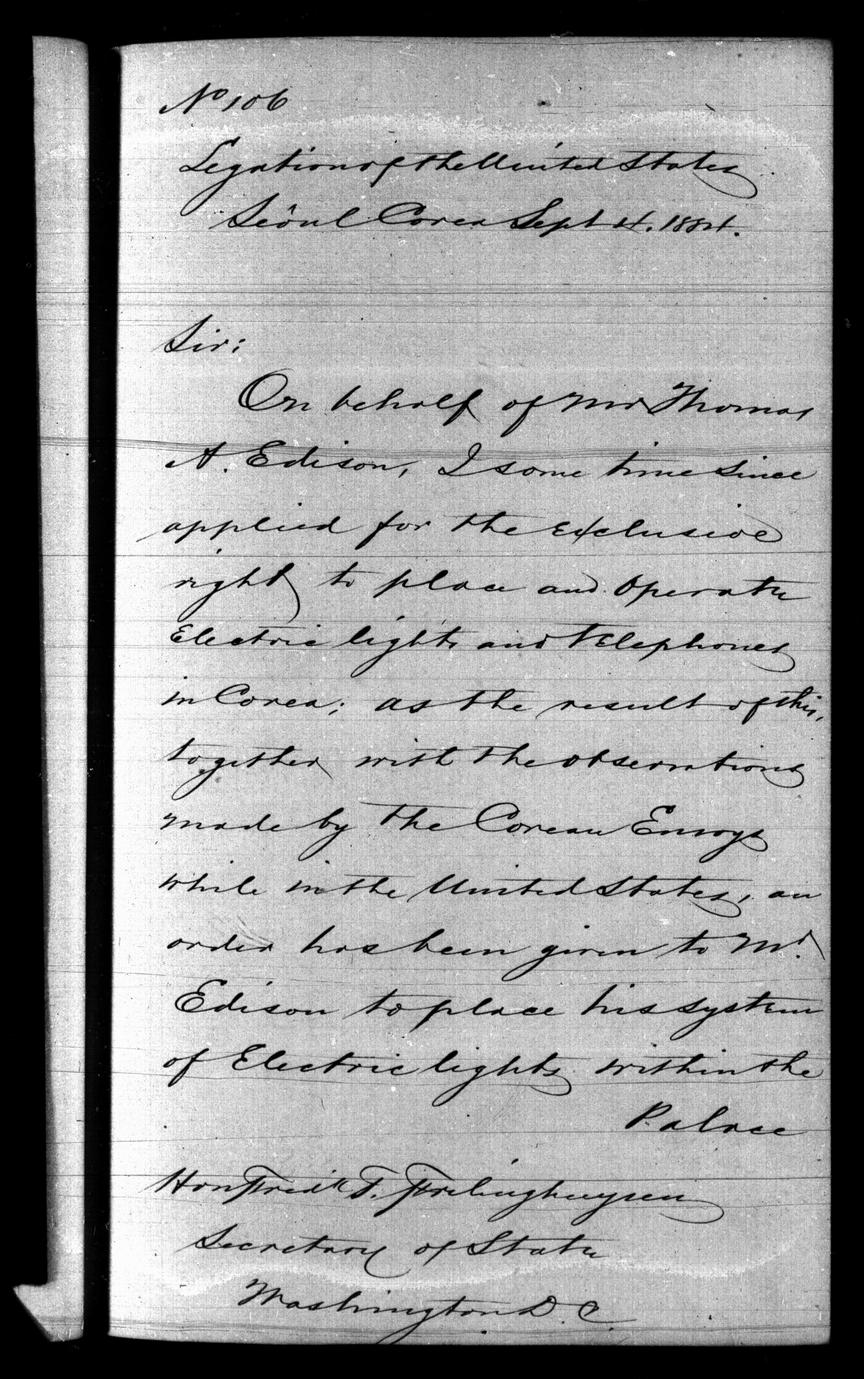 No 106
Legation of the United States
Seoul Corea Sept 4. 1884.
Sir:
On behalf of Mr Thomas
A. Edison, I some time since
applied for the exclusive
right to place and operate
Electric lights and telephones
in Corea; as the result of this,
together with the observations
made by the Corean Envoys
while in the United States, an
order has been given to Mr.
Edison to place his system
of Electric lights within the
Palace
Hon Fredk T. Frelinghuysen
Secretary of State
Washington D. C.